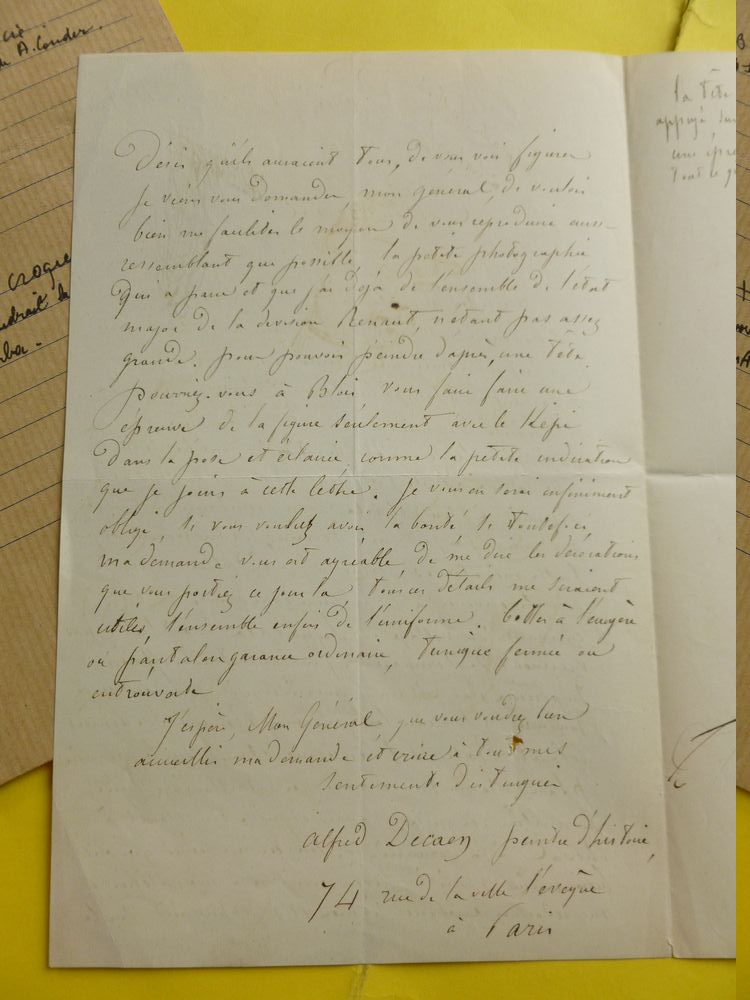 cié
A. Couder.
croque
la tête
appuyé sur
une épre
tout ce q
Désir qu'ils auraient tous, de vous voir figurer
Je viens vous demander, mon général, de vouloir
bien me faciliter le moyen de vous reproduire aussi
ressemblant que possible la petite photographie
qui a parue et que j'ai déjà de l'ensemble de l'état
major de la division Renaut, n'étant pas assez
grande. pour pouvoir peindre d'après, une tête
pourriez-vous à Blois vous faire faire une
épreuve de la figure seulement avec le Képi
dans la pose et éclairée, comme la petite indication
que je joins à cette lettre. Je vous en serai infiniment
obligé, si vous vouliez avoir la bonté si toutefois
ma demande vous est agréable de me dire les décorations
que vous portiez ce jour là tous ces détails me seraient
utiles, l'ensemble enfin de l'uniforme. bottes à l'écuyère
ou pantalon garance ordinaire, tunique fermée ou
entrouverte
J'espère, Mon Général que vous voudrez bien
accueillir ma demande et croire à tous mes
sentiments distingués
Alfred Decaen peintre d'histoire,
74 rue de la ville l'évêque
à Paris